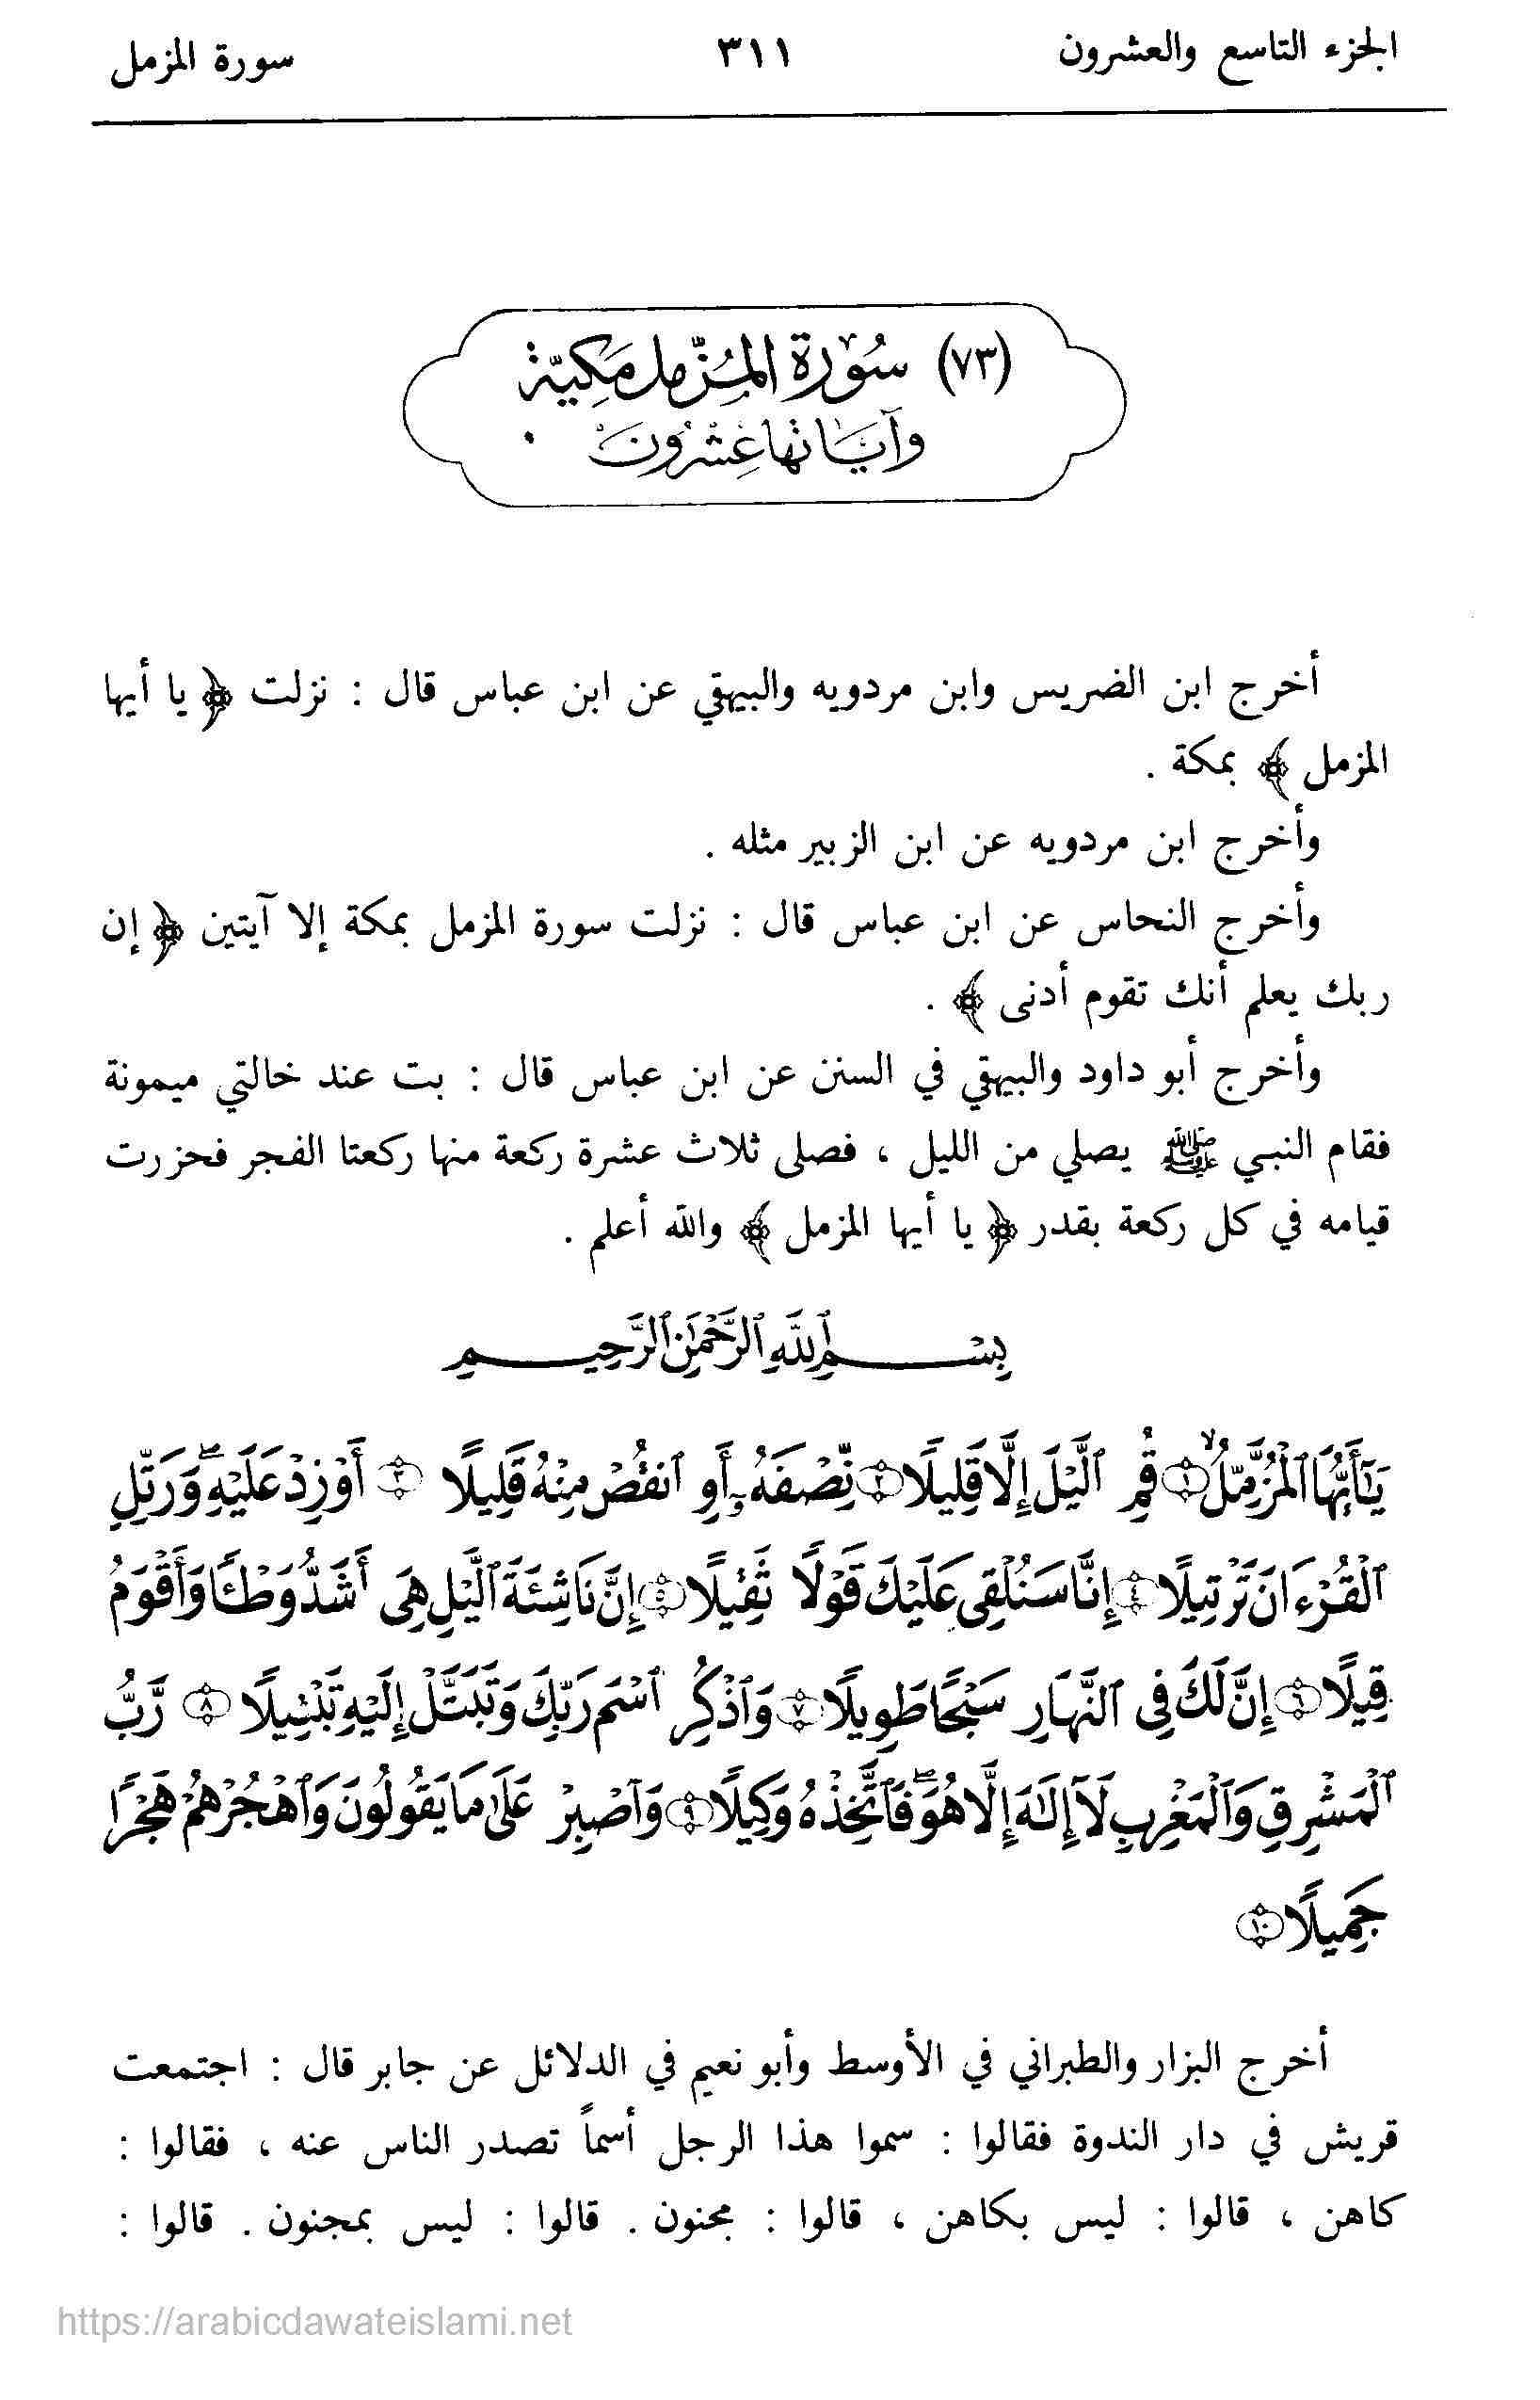 الجزء التاسع والعشرون ٣١١ سورة المزمل
(٧٣) سُورَة المُزّمل مَكِيّة
وَآيَاتُهَا عِشْرُون
أخرج ابن الضريس وابن مردويه والبيهقي عن ابن عباس قال : نزلت ﴿ يا أيها
المزمل ﴾ بمكة .
وأخرج ابن مردويه عن ابن الزبير مثله .
وأخرج النحاس عن ابن عباس قال : نزلت سورة المزمل بمكة إلا آيتين ﴿ إن
ربك يعلم أنك تقوم أدنى ﴾ .
وأخرج أبو داود والبيهقي في السنن عن ابن عباس قال : بت عند خالتي ميمونة
فقام النبي ﷺ يصلي من الليل ، فصلى ثلاث عشرة ركعة منها ركعتا الفجر فحزرت
قيامه في كل ركعة بقدر ﴿ يا أيها المزمل ﴾ والله أعلم .
بِسْمِ ٱللَّهِ ٱلرَّحْمَٰنِ ٱلرَّحِيمِ
يَٰٓأَيُّهَا ٱلْمُزَّمِّلُ ۙ ١ قُمِ ٱلَّيْلَ إِلَّا قَلِيلًا ٢ نِّصْفَهُۥٓ أَوِ ٱنقُصْ مِنْهُ قَلِيلًا ٣ أَوْ زِدْ عَلَيْهِ ۖ وَرَتِّلِ
ٱلْقُرْءَانَ تَرْتِيلًا ٤ إِنَّا سَنُلْقِى عَلَيْكَ قَوْلًا ثَقِيلًا ٥ إِنَّ نَاشِئَةَ ٱلَّيْلِ هِىَ أَشَدُّ وَطْـًٔا وَأَقْوَمُ
قِيلًا ٦ إِنَّ لَكَ فِى ٱلنَّهَارِ سَبْحًا طَوِيلًا ٧ وَٱذْكُرِ ٱسْمَ رَبِّكَ وَتَبَتَّلْ إِلَيْهِ تَبْتِيلًا ٨ رَّبُّ
ٱلْمَشْرِقِ وَٱلْمَغْرِبِ لَآ إِلَٰهَ إِلَّا هُوَ ۖ فَٱتَّخِذْهُ وَكِيلًا ٩ وَٱصْبِرْ عَلَىٰ مَا يَقُولُونَ وَٱهْجُرْهُمْ هَجْرًا
جَمِيلًا ١٠
أخرج البزار والطبراني في الأوسط وأبو نعيم في الدلائل عن جابر قال : اجتمعت
قريش في دار الندوة فقالوا : سموا هذا الرجل أسماً تصدر الناس عنه ، فقالوا :
كاهن ، قالوا : ليس بكاهن ، قالوا : مجنون . قالوا : ليس بمجنون . قالوا :
https://arabicdawateislami.net